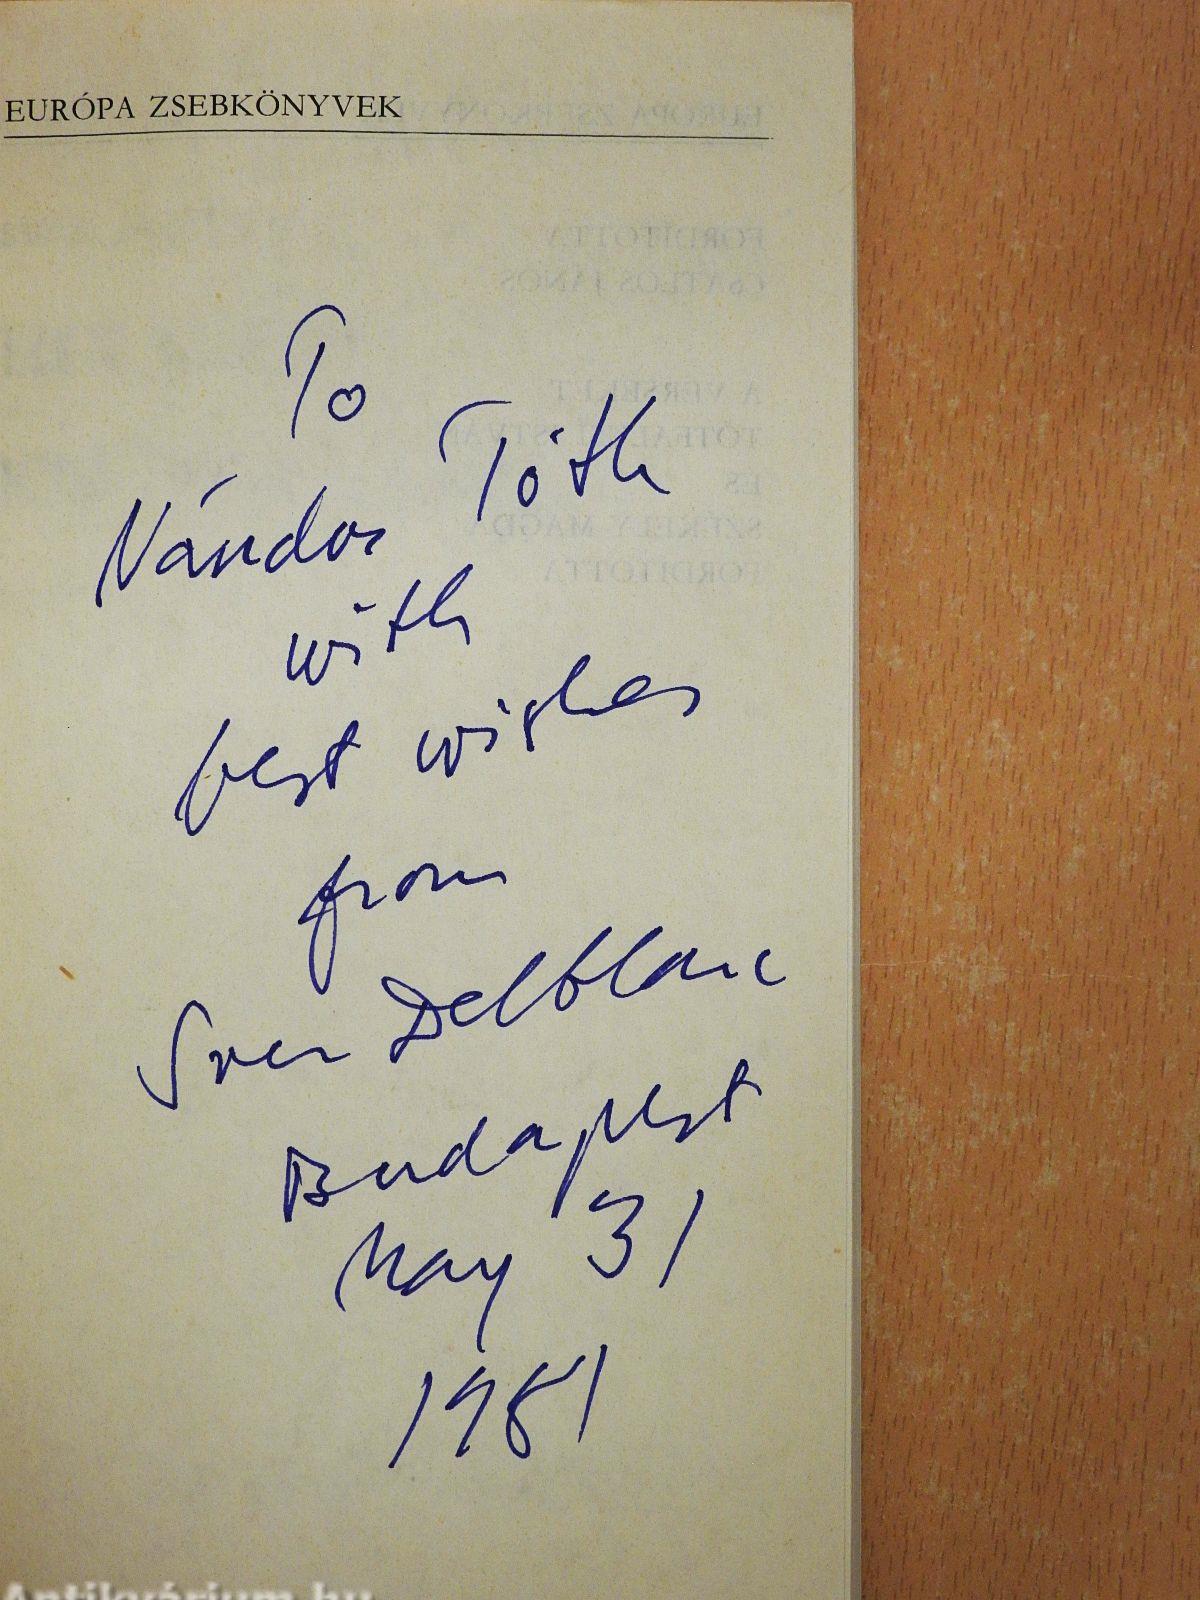 EURÓPA ZSEBKÖNYVEK
To
Nándor Tóth
with
best wishes
from
Sven Delblanc
Budapest
May 31
1981
Antikvárium.hu